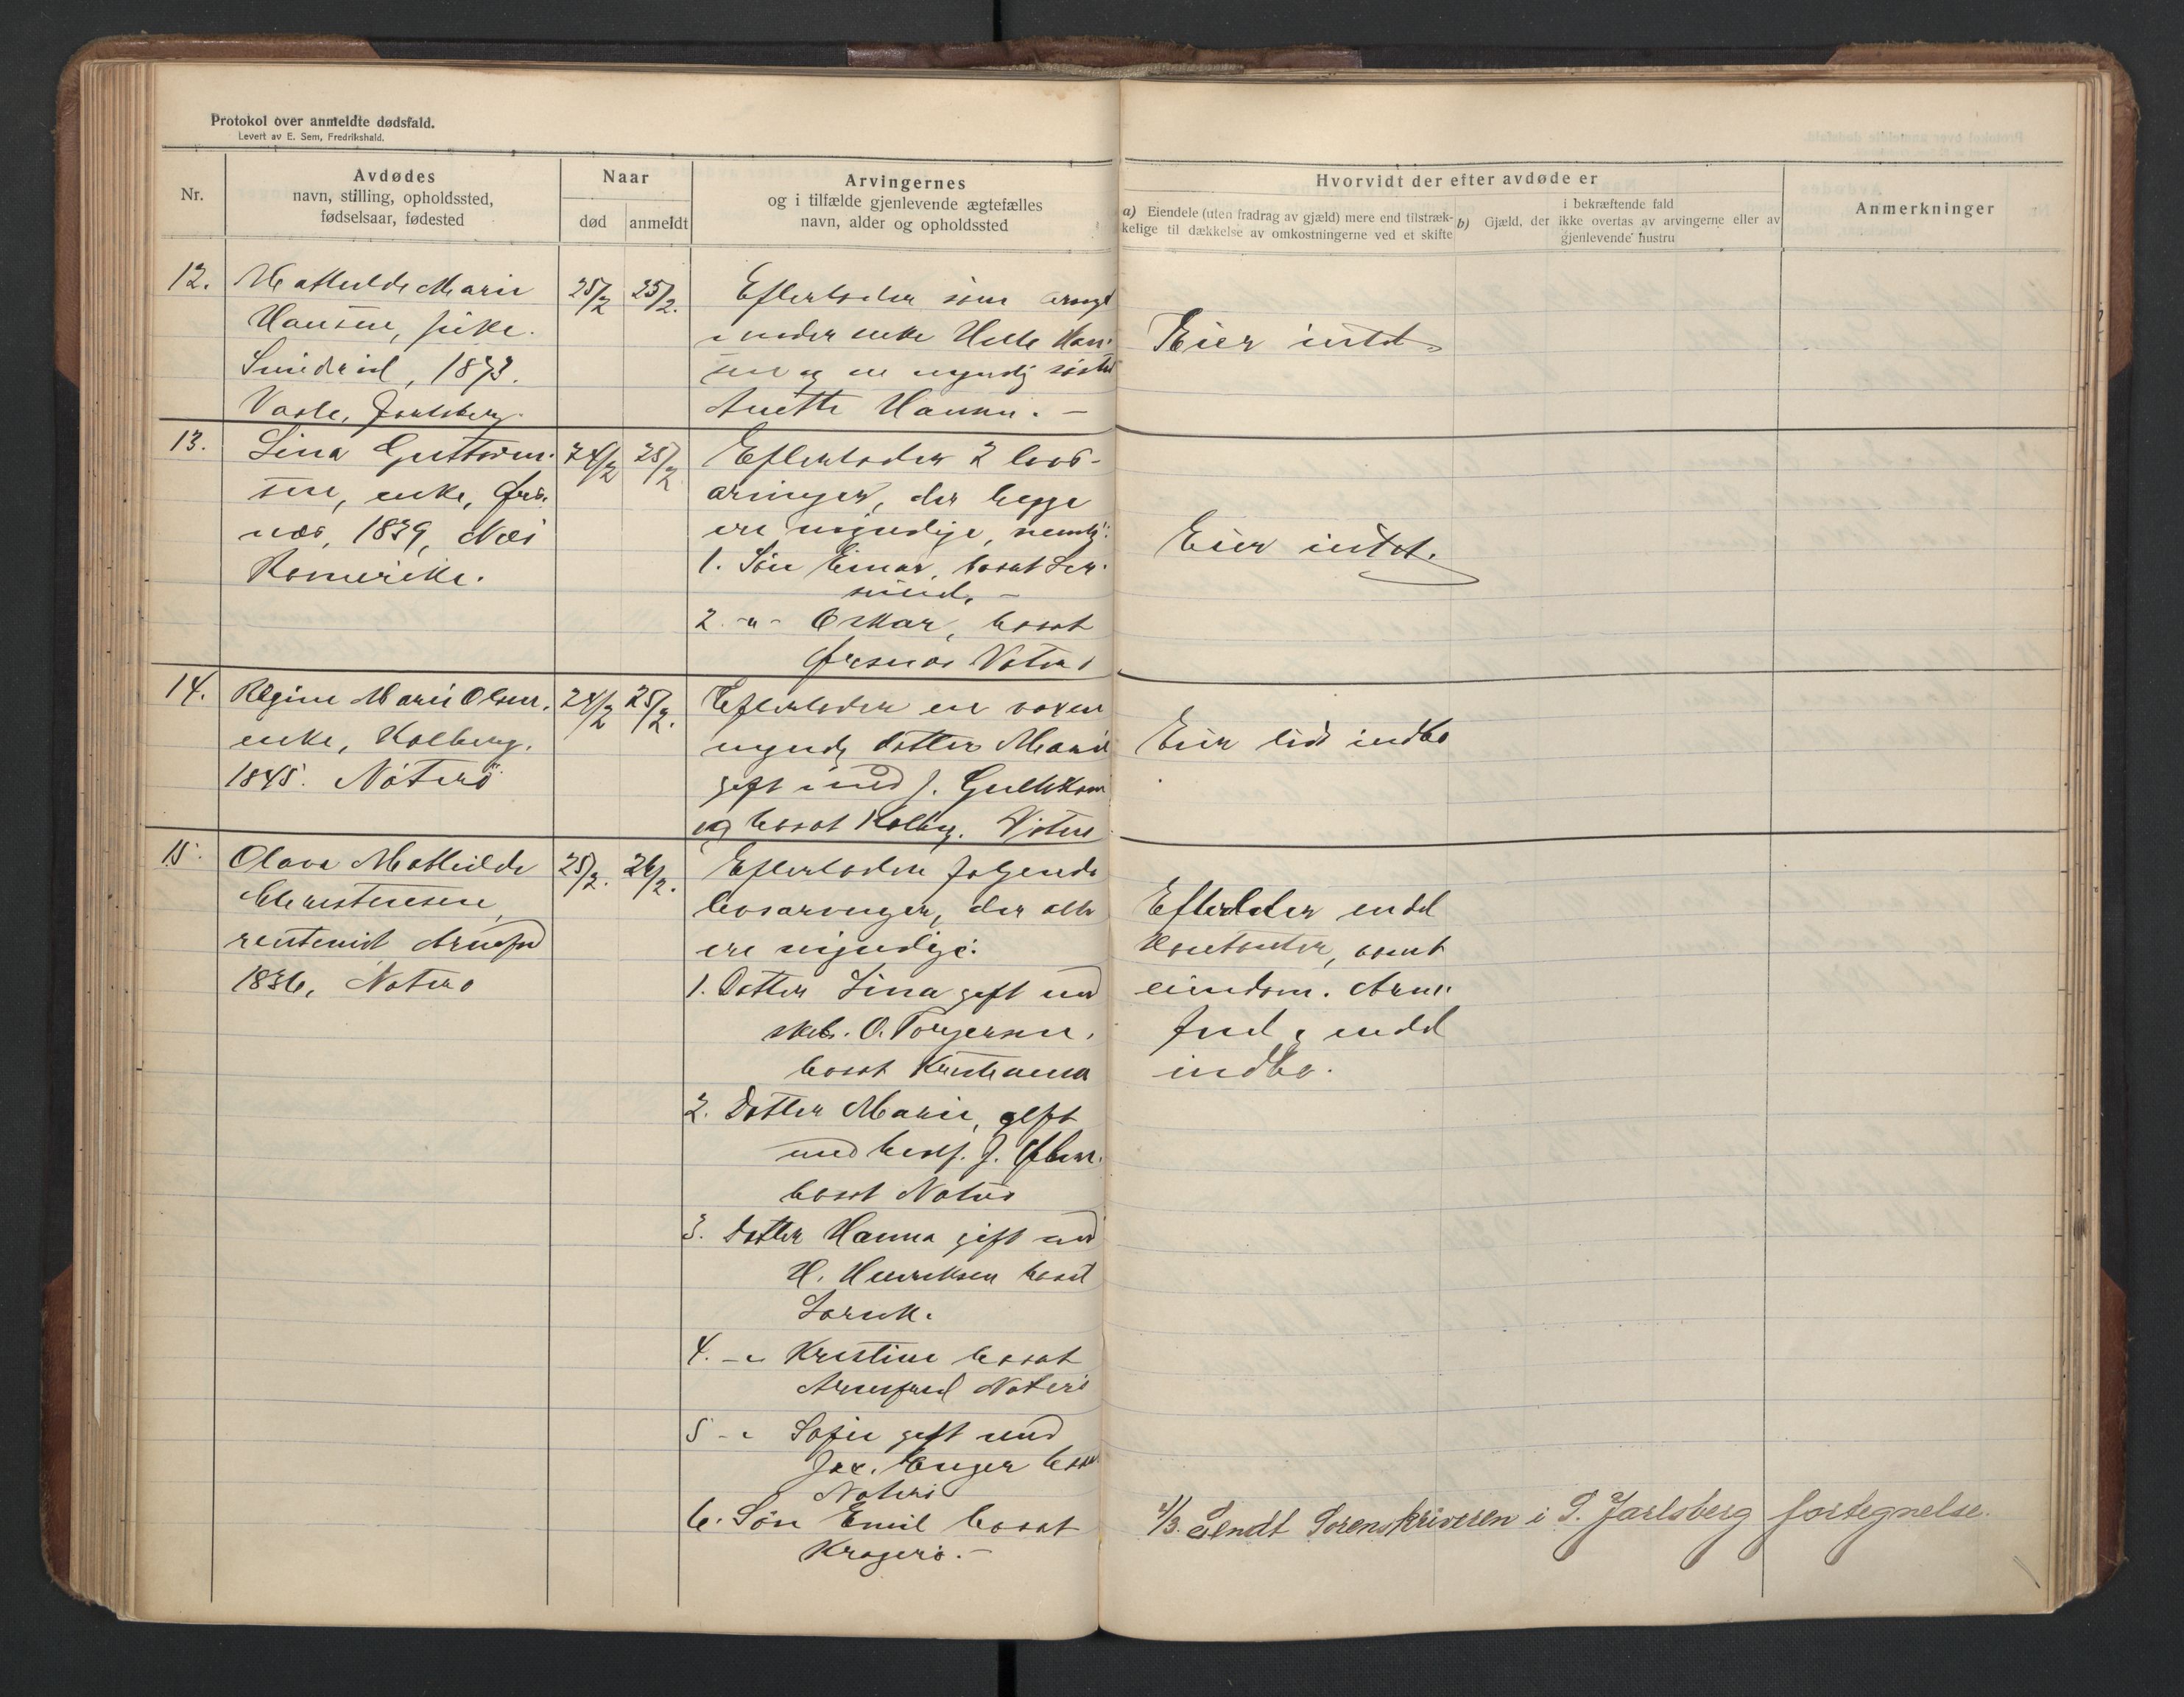 Protokol over anmeldte dødsfald.
Levert av E. Sem, Fredrikshald.
Nr.
Avdødes
navn, stilling, opholdssted,
fødselsaar, fødested
Naar
død
anmeldt
Arvingernes
og i tilfælde gjenlevende ægtefælles
navn, alder og opholdssted
Hvorvidt der efter avdøde er
a) Eiendele (uten fradrag av gjæld) mere end tilstræk-
kelige til dækkelse av omkostningerne ved et skifte
i bekræftende fald
b) Gjæld, der ikke overtas av arvingerne eller av
gjenlevende hustru
Anmerkninger
12.
Mathilde Marie
Hansen, pike.
1873.
Vaale, Jarlsberg.
25/2
25/2.
Efterlader som
moder enke Helle Han-
sen og en myndig søster
Anette Hansen. -
Eier intet
13.
Lina Guttorm-
sen, enke, Øre-
næs, 1839, Næs
Romerike.
24/2
25/2
Efterlader 2 livs-
arvinger, der begge
ere myndige, nemlig:
1. Søn Einar, bosat Ler-
sund. -
2. -"- Oskar, bosat
Øresnes Nøterø
Eier intet.
14.
Regine Marie Olsen,
enke, Kolberg.
1845. Nøterø
24/2
25/2.
Efterlader en voxen
myndig datter Marie
gift med J. Gulliksen
og bosat Kolberg. Nøterø
Eier lidt indbo
15.
Olava Mathilde
Christensen,
rentenist Arnefjed
1836, Nøterø
25/2.
26/2.
Efterlader følgende
livsarvinger, der alle
ere myndige:
1. Datter Lina gift med
skib. O. Torgersen,
bosat Kristiania
2. Datter Marie, gift
med J. Olsen.
bosat Nøterø
3. Datter Hanna gift med
H. Henriksen bosat
Larvik.
4. -"- Kristine bosat
Nøterø
5 -"- Sofie gift med
Jac. Unger bosat
Nøterø
6. Søn Emil bosat
Kragerø. -
Efterlader endel
kontanter, samt
eiendom. Arne-
endel
indbo.
2/3. Sendt Sorenskriveren i S. Jarlsberg fortegnelse.